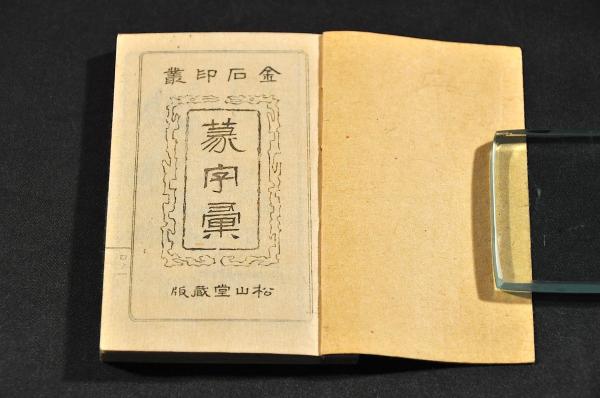 金石印叢
篆字彙
松山堂藏版